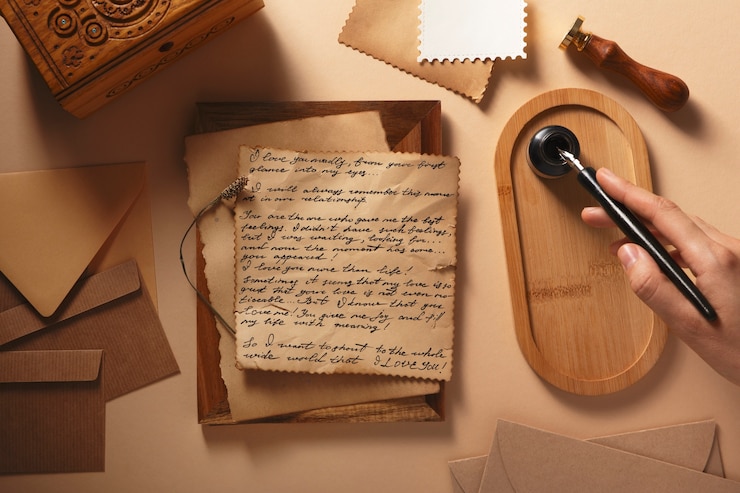 I love you madly, from your first
glance into my eyes...
I will always remember this name
at in our relationship.
You are the one who gave me the best
feelings. I didn't have such feelings,
but I was waiting, looking for...
and now the moment has come...
you appeared!
I love you more than life!
Sometimes it seems that my love is so
great that your love is not even no
ticeable... But I know that you
love me! You give me joy and fill
my life with meaning!
So I want to shout to the whole
wide world that I LOVE YOU!